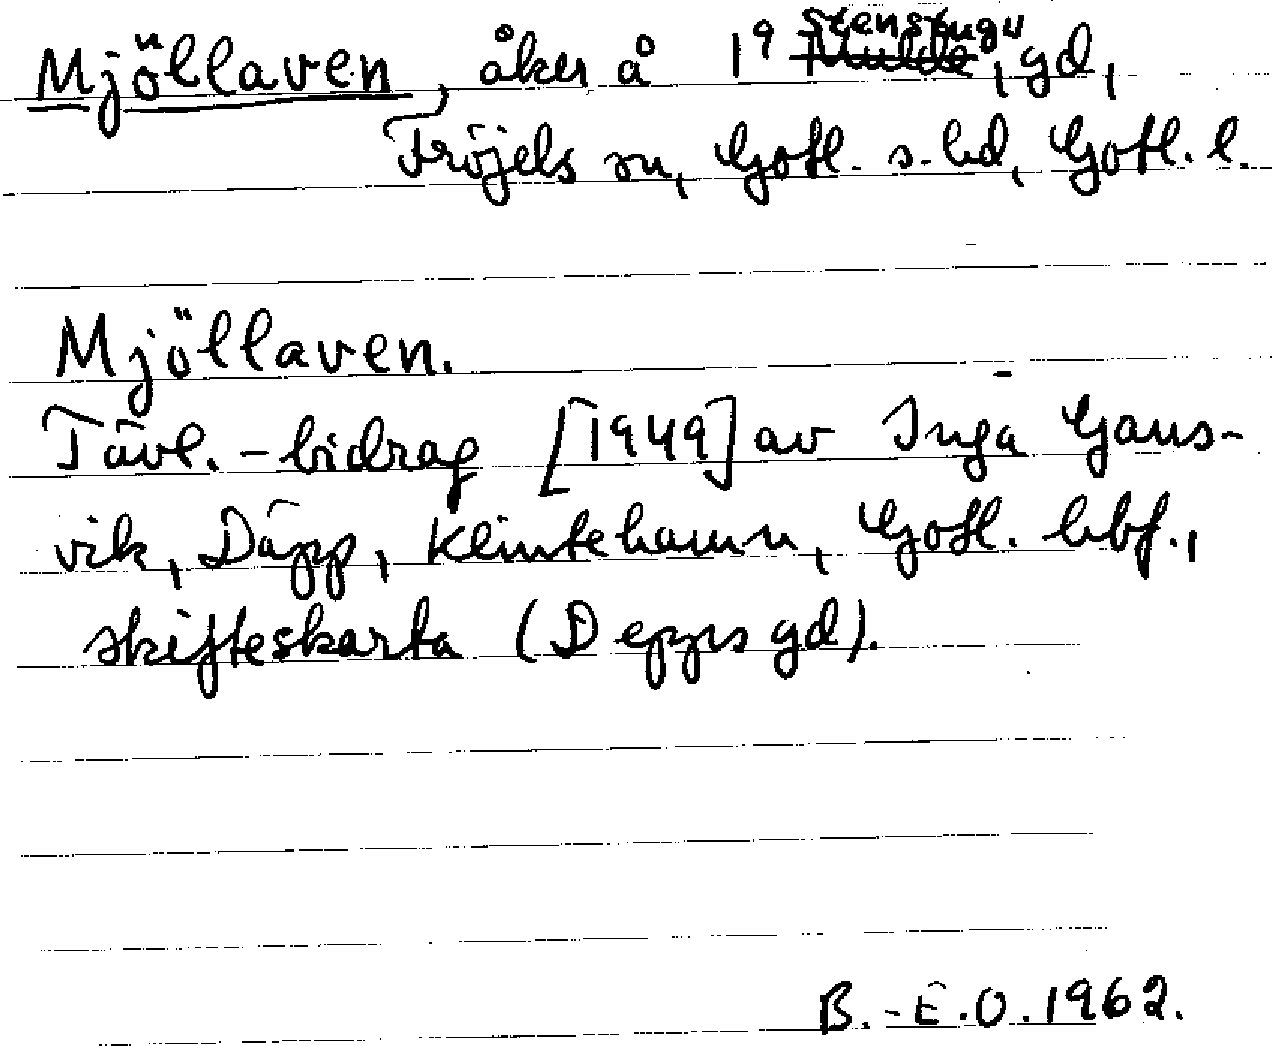 Mjöllaven, åker å 1⁹ Stenstugu, gd,
Fröjels sn, Gotl. s. hd, Gotl. l.
Mjöllaven.
Tävl.-bidrag [1949] av Inga Gans-
vik, Däpp, Klintehamn, Gotl. hbf.,
skifteskarta (Depps gd).
B.-E.O. 1962.